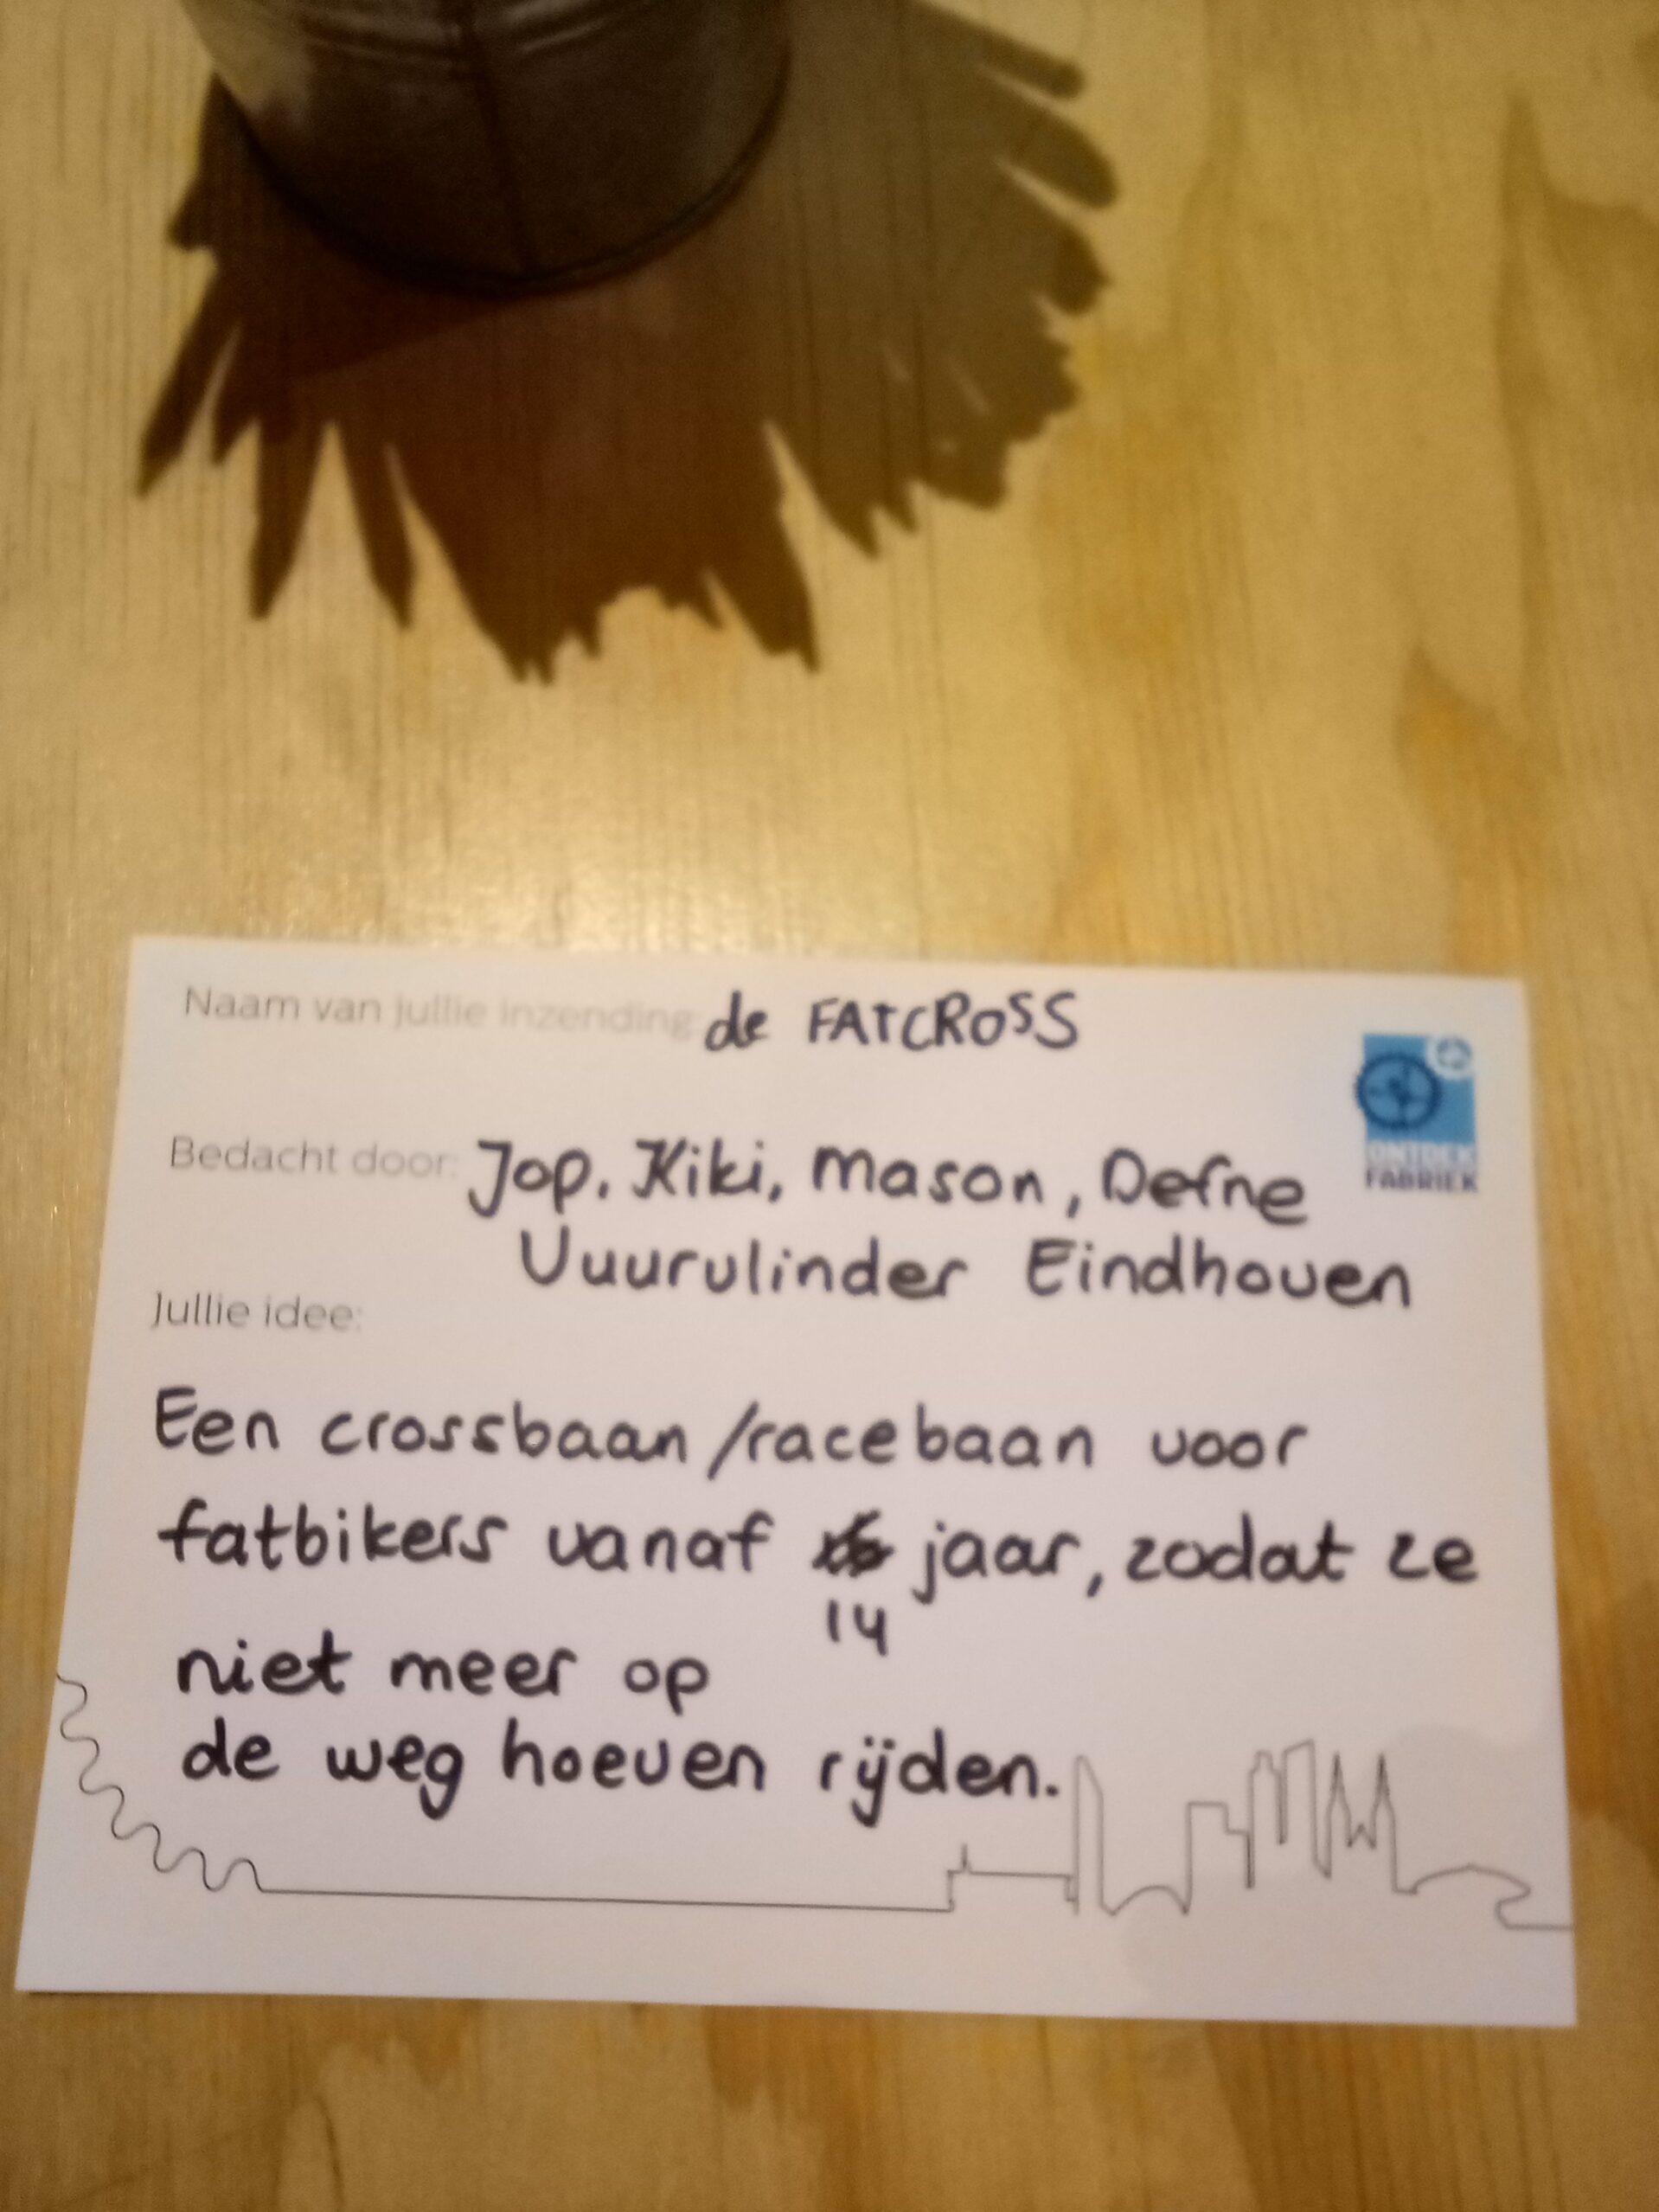 Naam van jullie inzending: de FATCROSS
ONTDEK
FABRIEK
Bedacht door: Jop, Kiki, Mason, Defne
Vuurvlinder Eindhoven
Jullie idee:
Een crossbaan/racebaan voor
fatbikers vanaf jaar, zodat ze
14
niet meer op
de weg hoeven rijden.